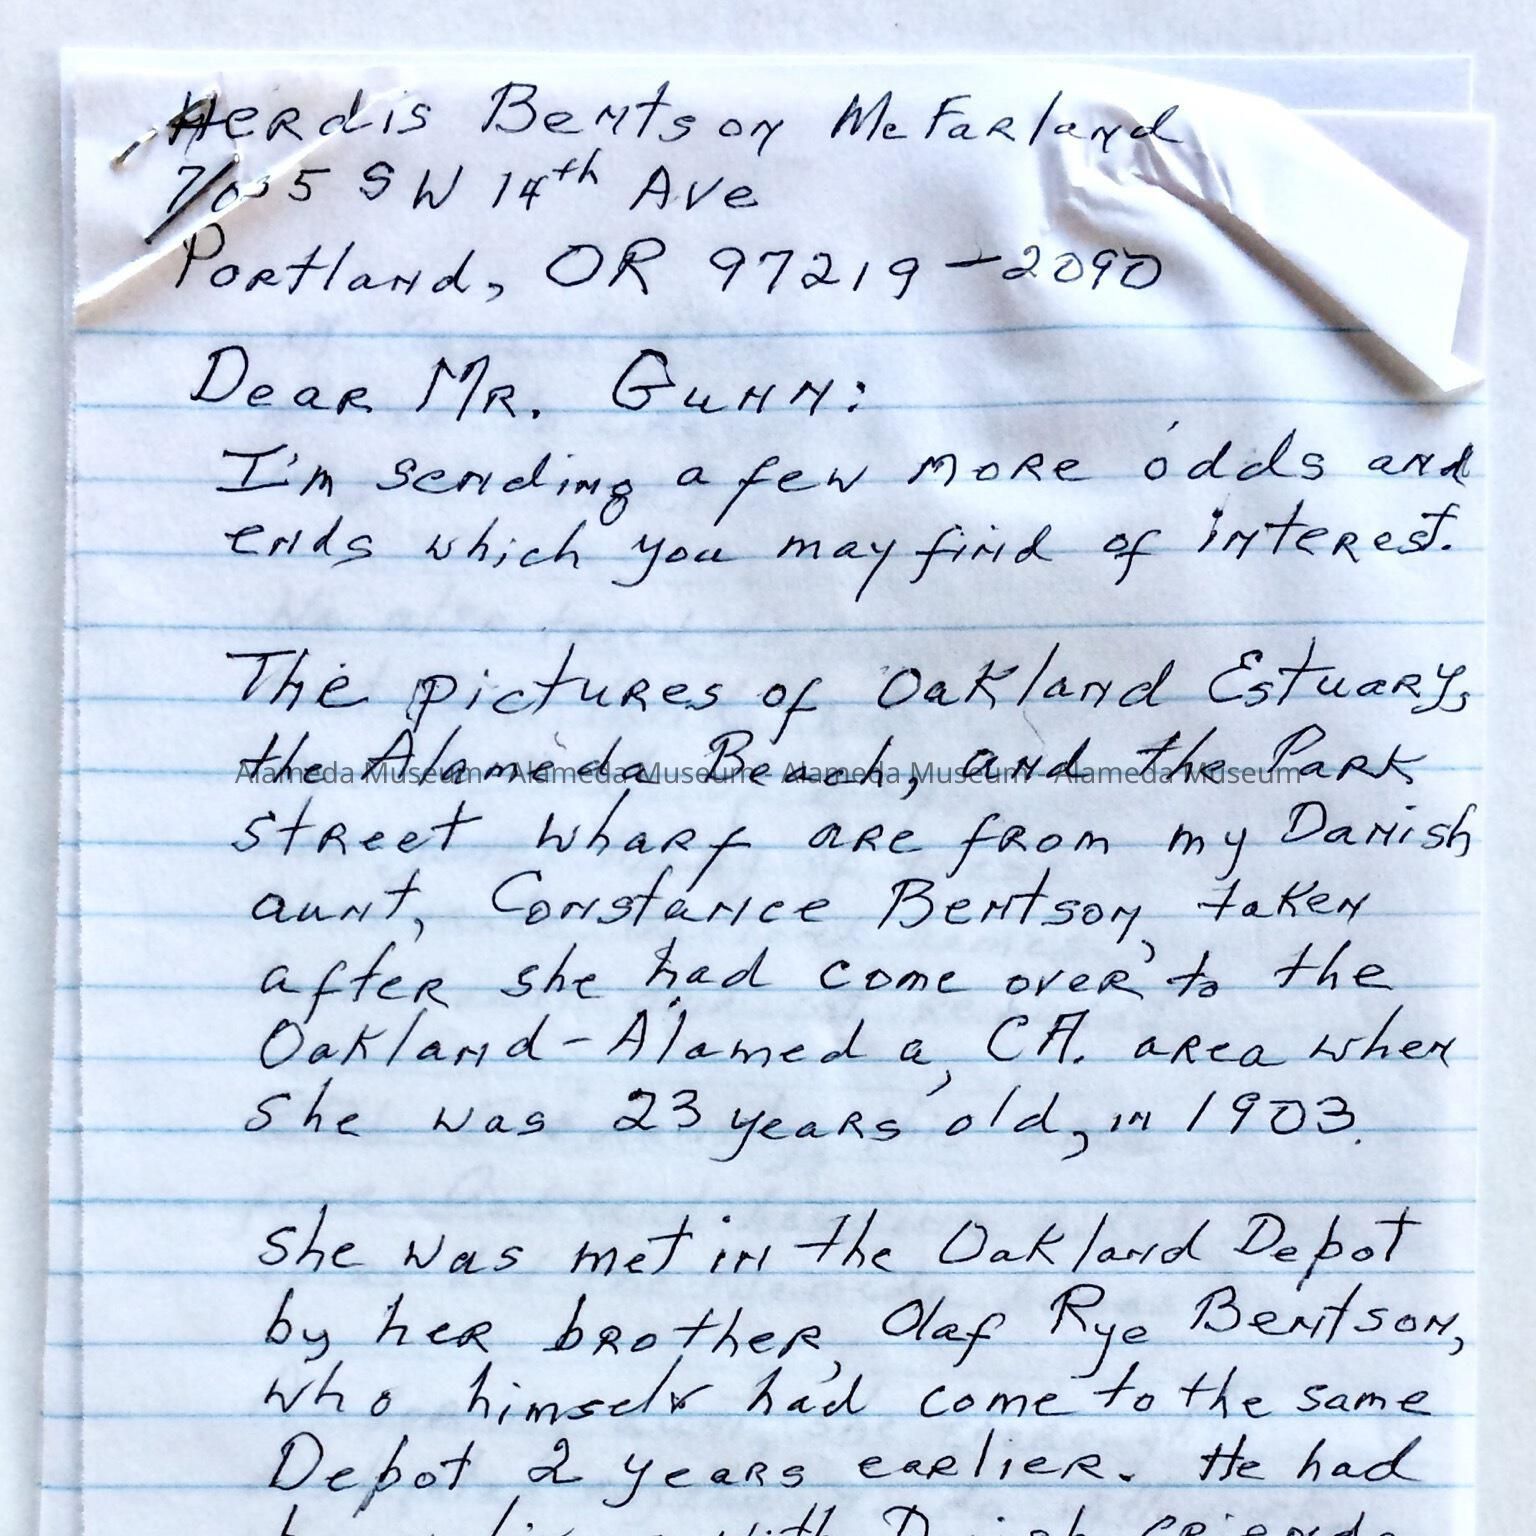 Herdis Bentson McFarland
7035 SW 14th Ave
Portland, OR 97219-2090
Dear Mr. Gunn:
I'm sending a few more odds and
ends which you may find of interest.
The pictures of Oakland Estuary,
the Alameda Beach, and the Park
Alameda Museum - Alameda Museum - Alameda Museum - Alameda Museum
Street wharf are from my Danish
aunt, Constance Bentson, taken
after she had come over to the
Oakland-Alameda, CA. area when
she was 23 years old, in 1903.
She was met in the Oakland Depot
by her brother, Olaf Rye Bentson,
who himself had come to the same
Depot 2 years earlier. He had
with Danish friends